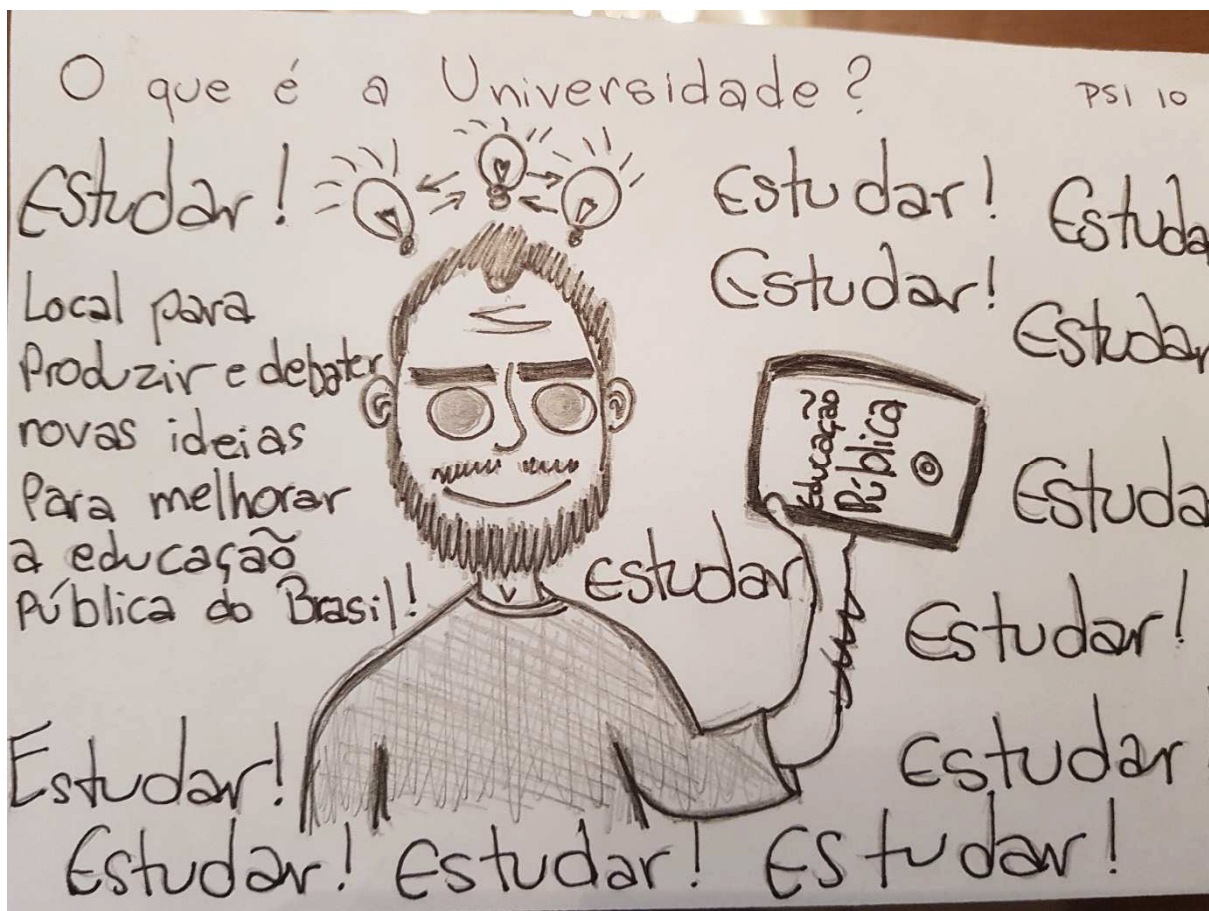 O que é a Universidade?
PSI 10
Estudar!
Estudar!
Estuda
Estudar!
Estudar
Local para
Produzir e debater
novas ideias
Para melhorar
a educação
Pública do Brasil!
Educação
Pública
Estuda
Estudar
Estudar!
Estudar!
Estudar
Estudar! Estudar! Estudar!